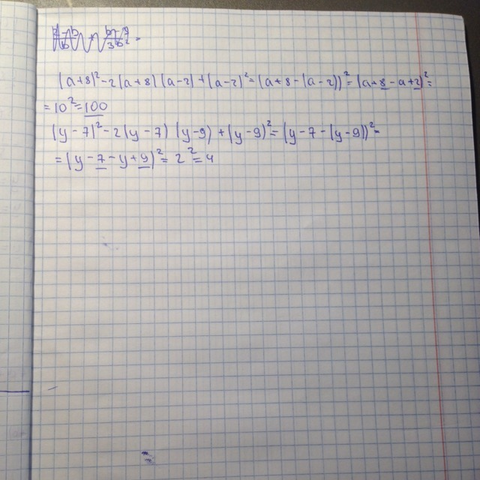 (a+8)²-2(a+8)(a-2)+(a-2)²=(a+8-(a-2))²=(a+8-a+2)²=
=10²=100
(y-7)²-2(y-7)(y-9)+(y-9)²=(y-7-(y-9))²=
=(y-7-y+9)²=2²=4